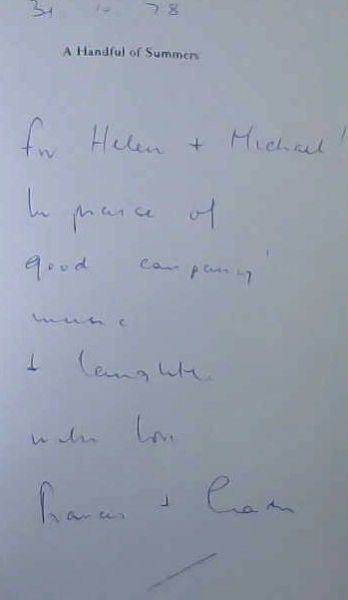 31 10 78
A Handful of Summers
for Helen + Michael!
In praise of
good company
music
+ laughter.
with love
+